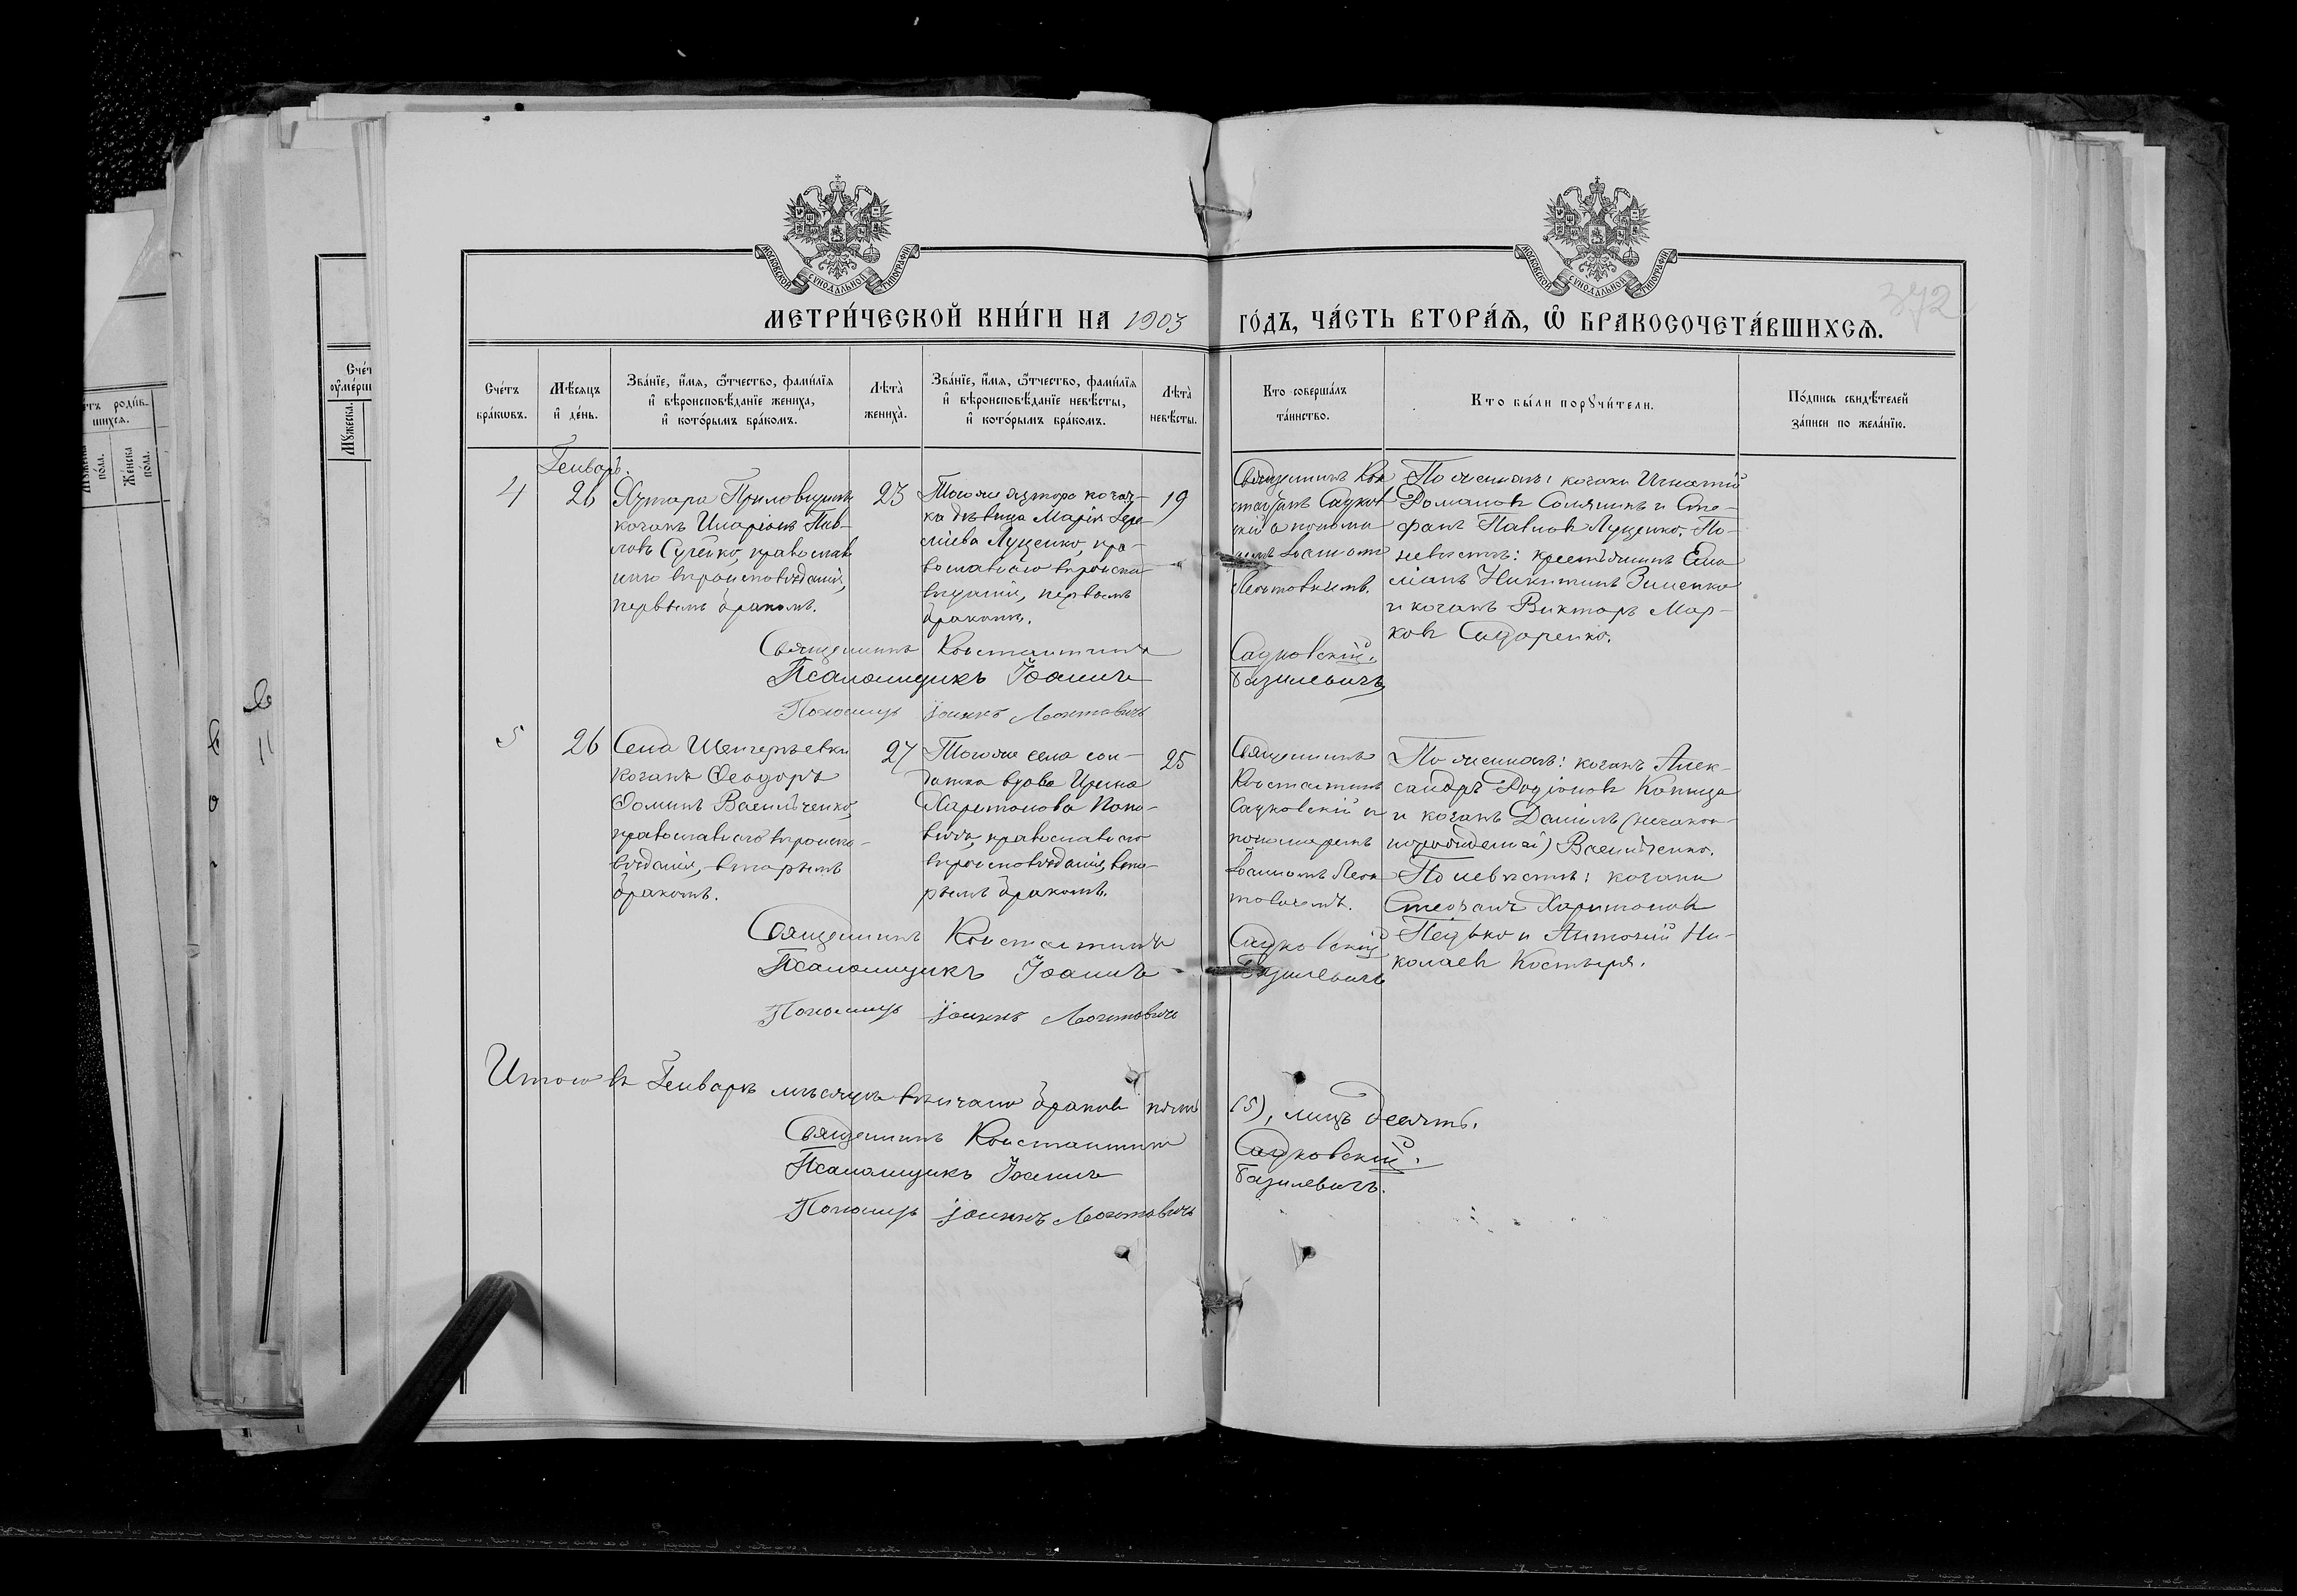 МОСКОВСКОЙ СУНОДАЛЬНОЙ ТИПОГРАФІИ
МОСКОВСКОЙ СУНОДАЛЬНОЙ ТИПОГРАФІИ
372
МЕТРИ́ЧЕСКОЙ КНИ́ГИ НА 1903 ГО́ДЪ, ЧА́СТЬ ВТОРА́Ѧ, Ѽ БРАКОСОЧЕТА́ВШИХСѦ.
Сче́тъ бра́кѡвъ.
Мѣ́сѧцъ и҆ де́нь.
Зва́нїе, и҆́мѧ, ѻ҆́тчество, фами́лїѧ
и҆ вѣроисповѣ́данїе жениха̀,
и҆ кото́рымъ бра́комъ.
Лѣта̀ жениха̀.
Зва́нїе, и҆́мѧ, ѻ҆́тчество, фами́лїѧ
и҆ вѣроисповѣ́данїе невѣ́сты,
и҆ кото́рымъ бра́комъ.
Лѣта̀ невѣ́сты.
Кто совершáлъ та́инство.
Кто бы́ли порꙋчи́тели.
По́дпись свидѣ́телей
за́писи по жела́нїю.
Генварь.
4
26
Хутора
козакъ Иларіонъ Пав-
ловъ Сулейко, православ
наго вѣроисповѣданія,
первымъ бракомъ.
23
Того же хутора козач-
ка дѣвица Марія Ере-
міева Луценко, пра-
вославнаго вѣроиспо-
вѣданія, первымъ
бракомъ.
19
Священникъ Кон
стантинъ Садков
скій с понома
ремъ Іоанномъ
Леонтовичемъ.
По женихѣ: козаки Игнатій
Романовъ Соляникъ и Сте-
фанъ Павловъ Луценко. По
невѣстѣ: крестьянинъ Еми
ліанъ Никитинъ Зименко
и козакъ Викторъ Мар-
ковъ Сидоренко.
Священникъ Константинъ Садковскій.
Псаломщикъ Іоаннъ Базилевичъ
Пономарь Іоаннъ Леонтовичъ
5
26
Села
козакъ Феодоръ
Фоминъ Василченко,
православнаго вѣроиспо-
вѣданія, вторымъ
бракомъ.
27
Того же села сол-
датка вдова Ирина
Харитонова Попо-
вичъ, православнаго
вѣроисповѣданія, вто-
рымъ бракомъ.
25
Священникъ
Константинъ
Садковскій и
пономаремъ
Іоанномъ Леон
товичемъ.
По женихѣ: козакъ Алек-
сандръ Родіоновъ Копица
и козакъ Даніилъ (незакон-
норожденный) Василченко.
По невѣстѣ: козаки
Стефанъ Харитоновъ
Педько и Антоній Ни-
колаевъ Костыря.
Священникъ Константинъ Садковскій
Псаломщикъ Іоаннъ Базилевичъ
Пономарь Іоаннъ Леонтовичъ
Итого въ Генварѣ мѣсяцѣ вѣнчано браковъ пять (5), лицъ десять.
Священникъ Константинъ Садковскій.
Псаломщикъ Іоаннъ Базилевичъ.
Пономарь Іоаннъ Леонтовичъ